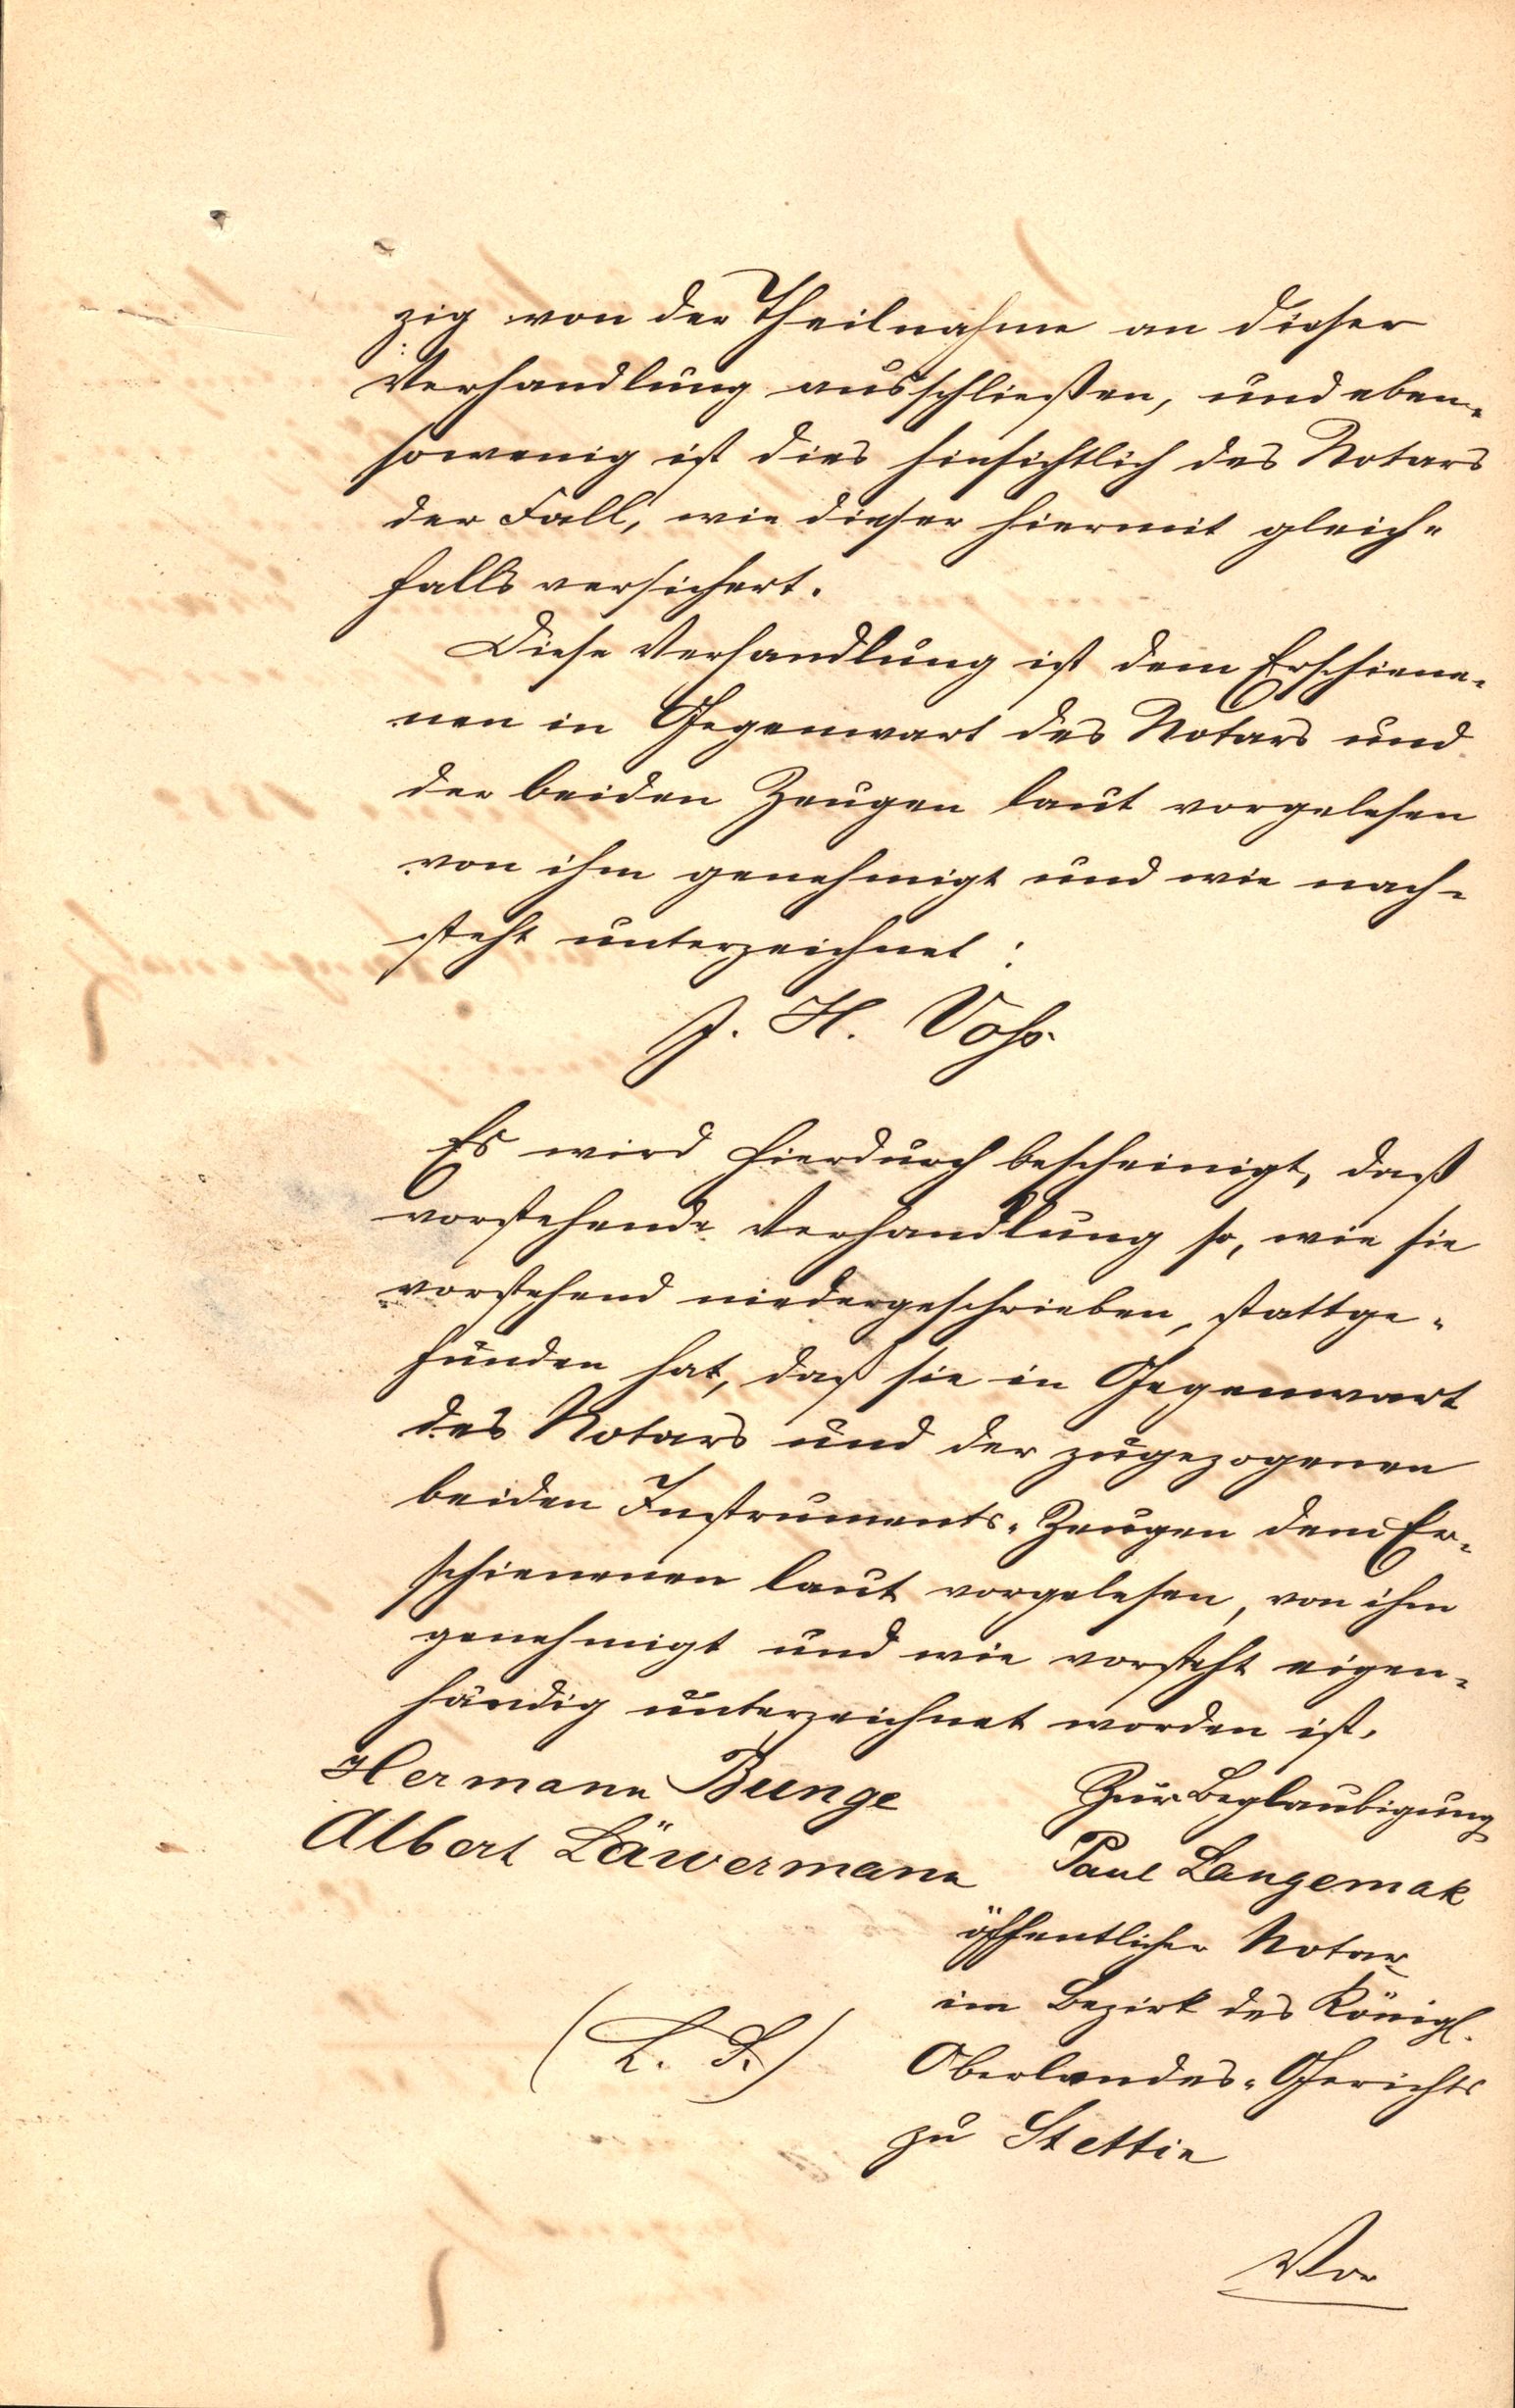 zig von der Theilnahme an dieser
Verhandlung ausschließen, und eben-
sowenig ist dies hinsichtlich des Notars
der Fall, wie dieser hiermit gleich-
falls versichert.
Diese Verhandlung ist dem Erschiene-
nen in Gegenwart des Notars und
der beiden Zeugen laut vorgelesen
von ihm genehmigt und wie nach-
steht unterzeichnet:
J. H. Voß
Es wird hierdurch bescheinigt, daß
vorstehende Verhandlung so, wie sie
vorstehend niedergeschrieben, stattge-
funden hat, daß sie in Gegenwart
des Notars und der zugezogenen
beiden Instruments-Zeugen dem Er-
schienenen laut vorgelesen, von ihm
genehmigt und wie vorsteht eigen-
händig unterzeichnet worden ist.
Hermann Bunge
Albert Läwermann
Zur Beglaubigung
Paul Langemak
öffentlicher Notar
im Bezirk des Königl.
Oberlandes-Gerichts
zu Stettin
(L. S.)
Vor